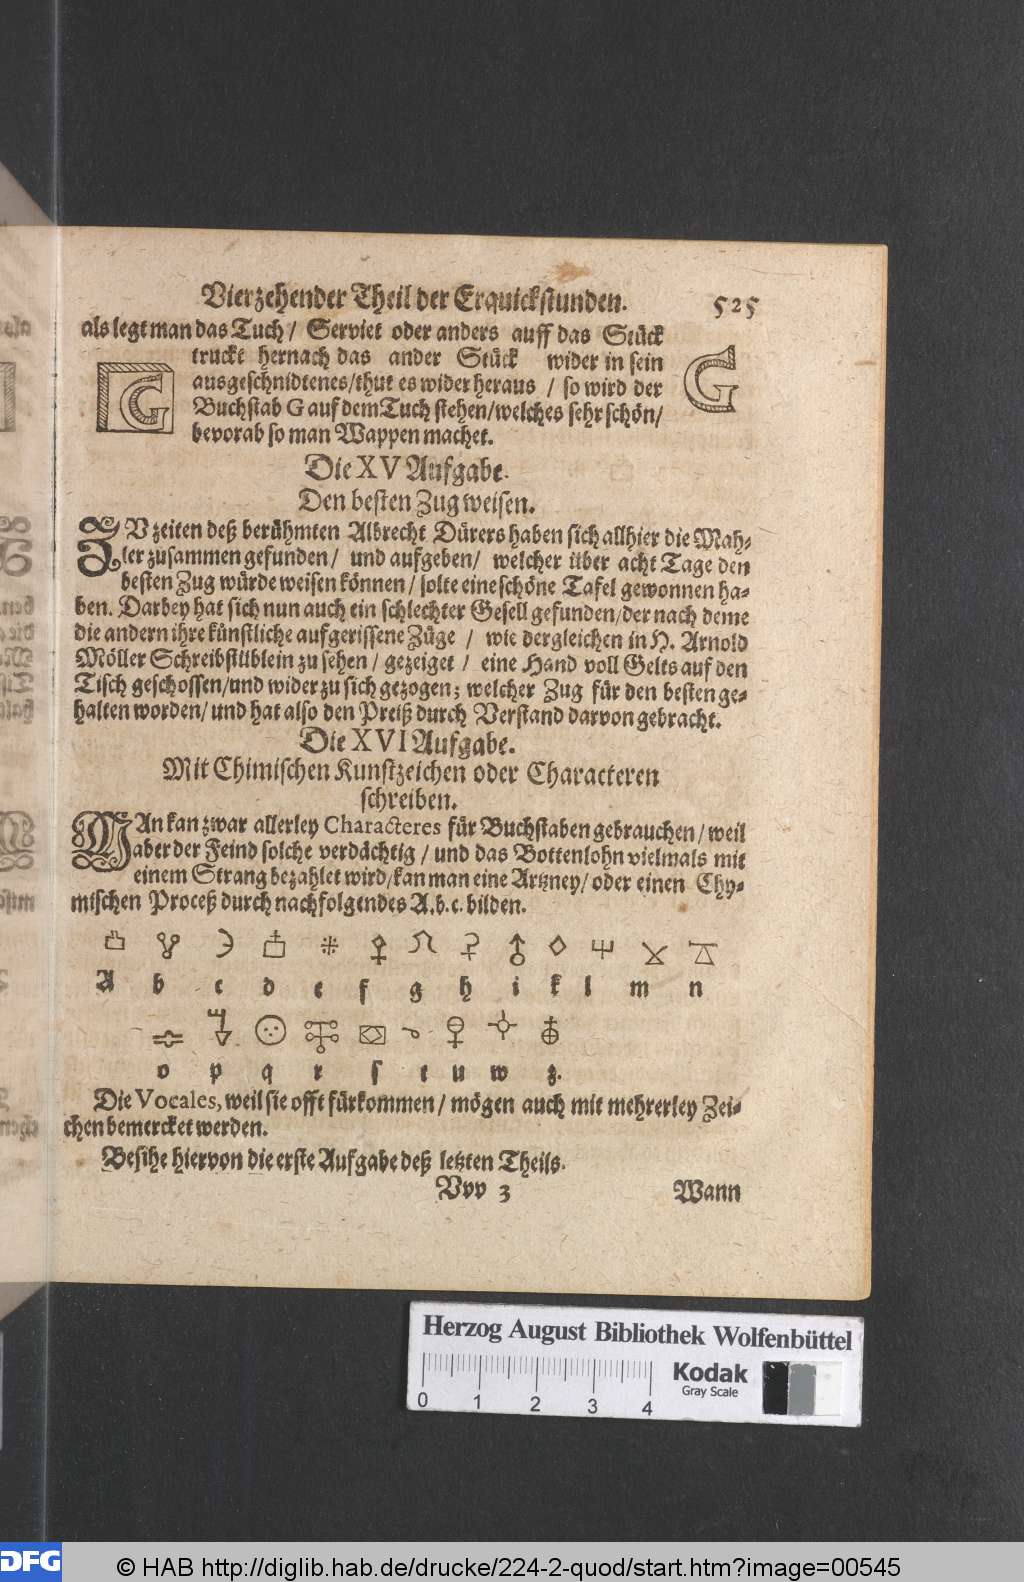 Vierzehender Theil der Erquickstunden. 525
als legt man das Tuch / Serviet oder anders auff das Stück
truckt hernach das ander Stück wider in sein
ausgeschnidtenes/thut es wider heraus / so wird der
Buchstab G auf dem Tuch stehen/welches sehr schön/
bevorab so man Wappen machet.
G
G
Die XV Aufgabe.
Den besten Zug weisen.
ZV zeiten deß berühmten Albrecht Dürers haben sich allhier die Mah-
ler zusammen gefunden / und aufgeben / welcher über acht Tage den
besten Zug würde weisen können / solte eine schöne Tafel gewonnen ha-
ben. Darbey hat sich nun auch ein schlechter Gesell gefunden/der nach deme
die andern ihre künstliche aufgerissene Züge / wie dergleichen in H. Arnold
Möller Schreibstüblein zu sehen / gezeiget / eine Hand voll Gelts auf den
Tisch geschossen/und wider zu sich gezogen; welcher Zug für den besten ge-
halten worden/ und hat also den Preiß durch Verstand darvon gebracht.
Die XVI Aufgabe.
Mit Chimischen Kunstzeichen oder Characteren
schreiben.
MAn kan zwar allerley Characteres für Buchstaben gebrauchen / weil
aber der Feind solche verdächtig / und das Bottenlohn vielmals mit
einem Strang bezahlet wird/kan man eine Artzney / oder einen Chy-
mischen Proceß durch nachfolgendes A.b.c. bilden.
A b c d e f g h i k l m n
o p q r s t u w z.
Die Vocales, weil sie offt fürkommen / mögen auch mit mehrerley Zei-
chen bemercket werden.
Besihe hiervon die erste Aufgabe deß letzten Theils.
Vvv 3 Wann
Herzog August Bibliothek Wolfenbüttel
Kodak
Gray Scale
0 1 2 3 4
DFG
© HAB http://diglib.hab.de/drucke/224-2-quod/start.htm?image=00545